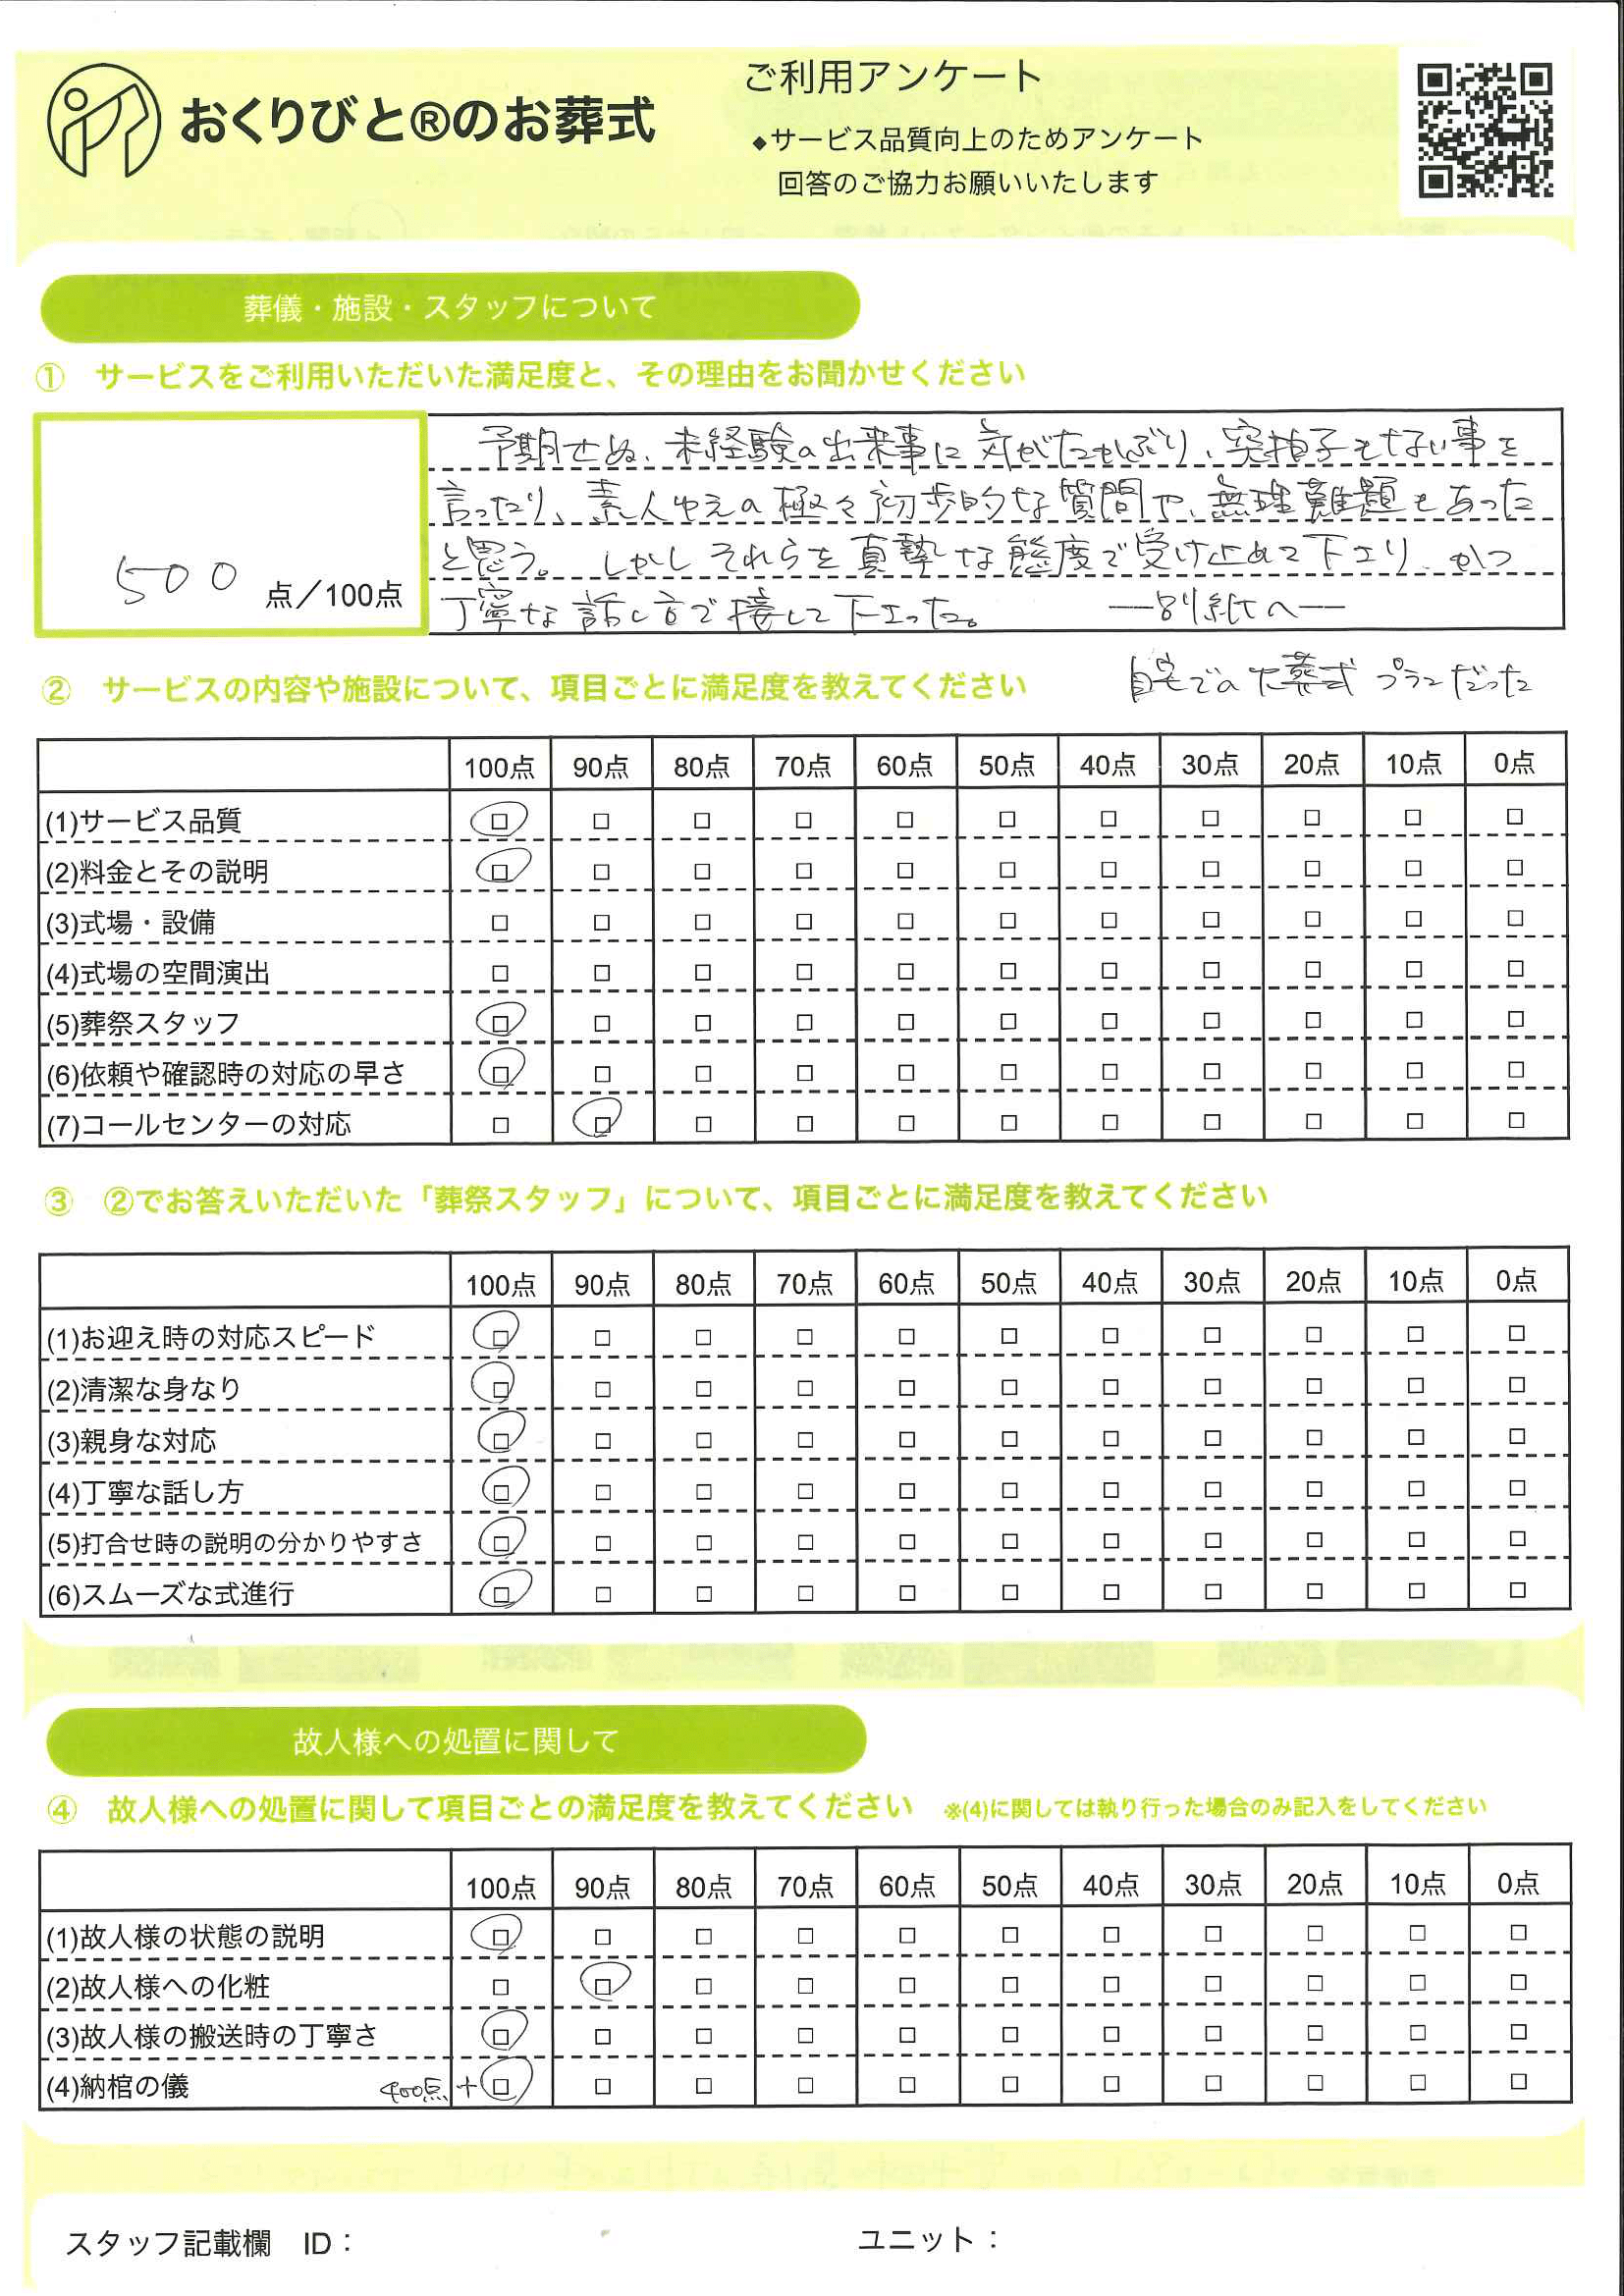 おくりびと®のお葬式
ご利用アンケート
◆サービス品質向上のためアンケート
回答のご協力お願いいたします
葬儀・施設・スタッフについて
① サービスをご利用いただいた満足度と、その理由をお聞かせください
500 点／100点
予期せぬ、未経験の出来事に気がたかぶり、突拍子もない事を
言ったり、素人ゆえの極々初歩的な質問や、無理難題もあった
と思う。しかしそれらを真摯な態度で受け止めて下さり、かつ
丁寧な話し方で接して下さった。 ―別紙へ―
② サービスの内容や施設について、項目ごとに満足度を教えてください
自宅でのお葬式プランだった
100点 90点 80点 70点 60点 50点 40点 30点 20点 10点 0点
(1)サービス品質 □ □ □ □ □ □ □ □ □ □ □
(2)料金とその説明 □ □ □ □ □ □ □ □ □ □ □
(3)式場・設備 □ □ □ □ □ □ □ □ □ □ □
(4)式場の空間演出 □ □ □ □ □ □ □ □ □ □ □
(5)葬祭スタッフ □ □ □ □ □ □ □ □ □ □ □
(6)依頼や確認時の対応の早さ □ □ □ □ □ □ □ □ □ □ □
(7)コールセンターの対応 □ □ □ □ □ □ □ □ □ □ □
③ ②でお答えいただいた「葬祭スタッフ」について、項目ごとに満足度を教えてください
100点 90点 80点 70点 60点 50点 40点 30点 20点 10点 0点
(1)お迎え時の対応スピード □ □ □ □ □ □ □ □ □ □ □
(2)清潔な身なり □ □ □ □ □ □ □ □ □ □ □
(3)親身な対応 □ □ □ □ □ □ □ □ □ □ □
(4)丁寧な話し方 □ □ □ □ □ □ □ □ □ □ □
(5)打合せ時の説明の分かりやすさ □ □ □ □ □ □ □ □ □ □ □
(6)スムーズな式進行 □ □ □ □ □ □ □ □ □ □ □
故人様への処置に関して
④ 故人様への処置に関して項目ごとの満足度を教えてください ※(4)に関しては執り行った場合のみ記入をしてください
100点 90点 80点 70点 60点 50点 40点 30点 20点 10点 0点
(1)故人様の状態の説明 □ □ □ □ □ □ □ □ □ □ □
(2)故人様への化粧 □ □ □ □ □ □ □ □ □ □ □
(3)故人様の搬送時の丁寧さ □ □ □ □ □ □ □ □ □ □ □
(4)納棺の儀 400点+ □ □ □ □ □ □ □ □ □ □ □
スタッフ記載欄 ID： ユニット：